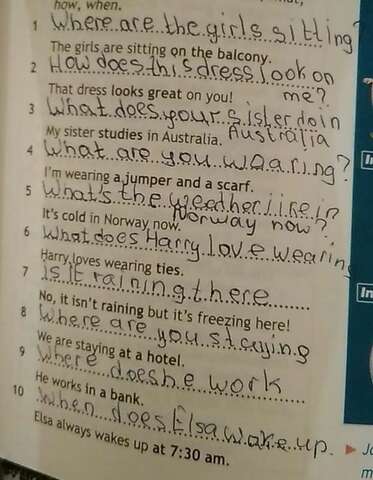 how, when.
1 Where are the girls sitting?
The girls are sitting on the balcony.
2 How does this dress look on me?
That dress looks great on you!
3 What does your sister do in Australia
My sister studies in Australia.
4 What are you wearing?
I'm wearing a jumper and a scarf.
5 What's the weather like in Norway now?
It's cold in Norway now.
6 What does Harry love wearing
Harry loves wearing ties.
7 Is it raining there
No, it isn't raining but it's freezing here!
8 Where are you staying
We are staying at a hotel.
9 Where does he work
He works in a bank.
10 When does Elsa wake up.
Elsa always wakes up at 7:30 am.